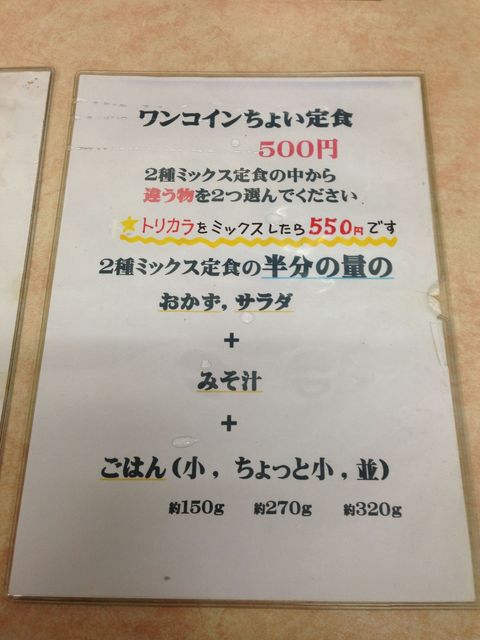 ワンコインちょい定食
500円
2種ミックス定食の中から
違う物を2つ選んでください
★トリカラをミックスしたら550円です
2種ミックス定食の半分の量の
おかず,サラダ
+
みそ汁
+
ごはん(小,ちょっと小,並)
約150g 約270g 約320g